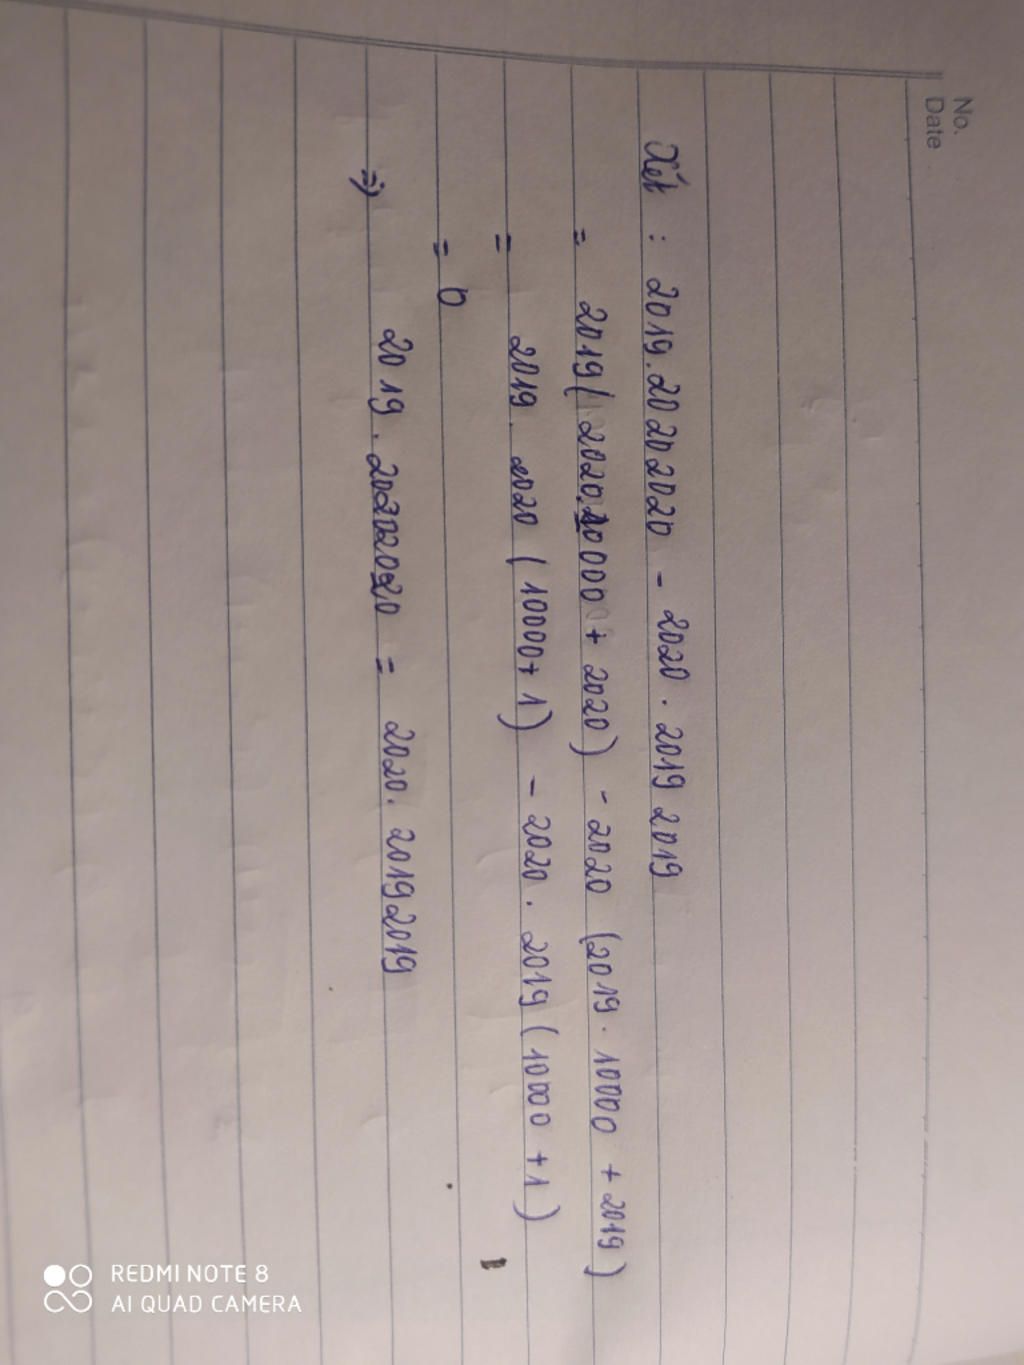 No.
Date
Xét : 2019.20202020 - 2020 . 2019 2019
= 2019( 2020.10000 + 2020) - 2020 (2019 . 10000 + 2019)
= 2019 . 2020 ( 10000+ 1) - 2020 . 2019 ( 10000 + 1 )
= 0
=> 2019 . 20202020 = 2020. 20192019
REDMI NOTE 8
AI QUAD CAMERA